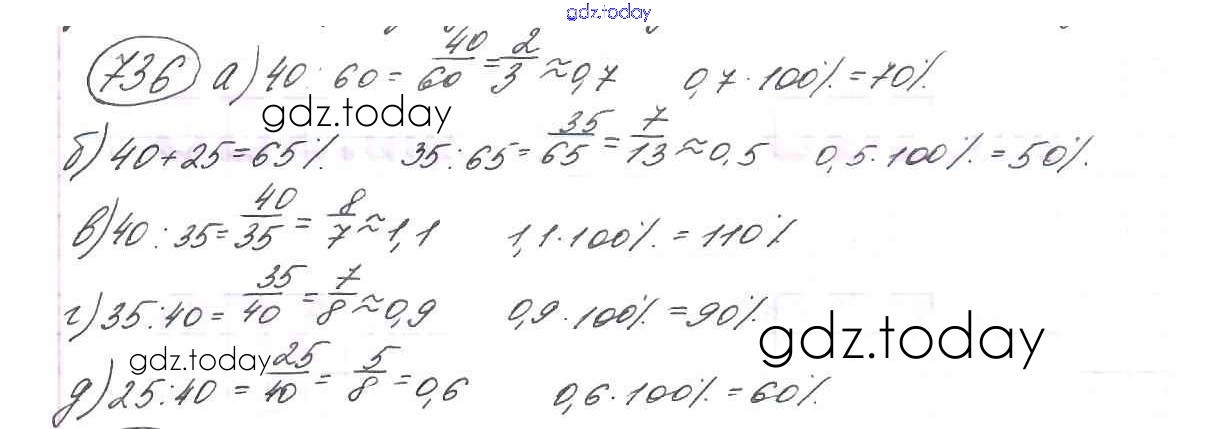 gdz.today
736 а) 40 : 60 = 40/60 = 2/3 ≈ 0,7 0,7 · 100% = 70%
gdz.today
б) 40 + 25 = 65% 35 : 65 = 35/65 = 7/13 ≈ 0,5 0,5 · 100% = 50%.
в) 40 : 35 = 40/35 = 8/7 ≈ 1,1 1,1 · 100% = 110%
г) 35 : 40 = 35/40 = 7/8 ≈ 0,9 0,9 · 100% = 90%.
gdz.today
gdz.today
д) 25 : 40 = 25/40 = 5/8 = 0,6 0,6 · 100% = 60%.